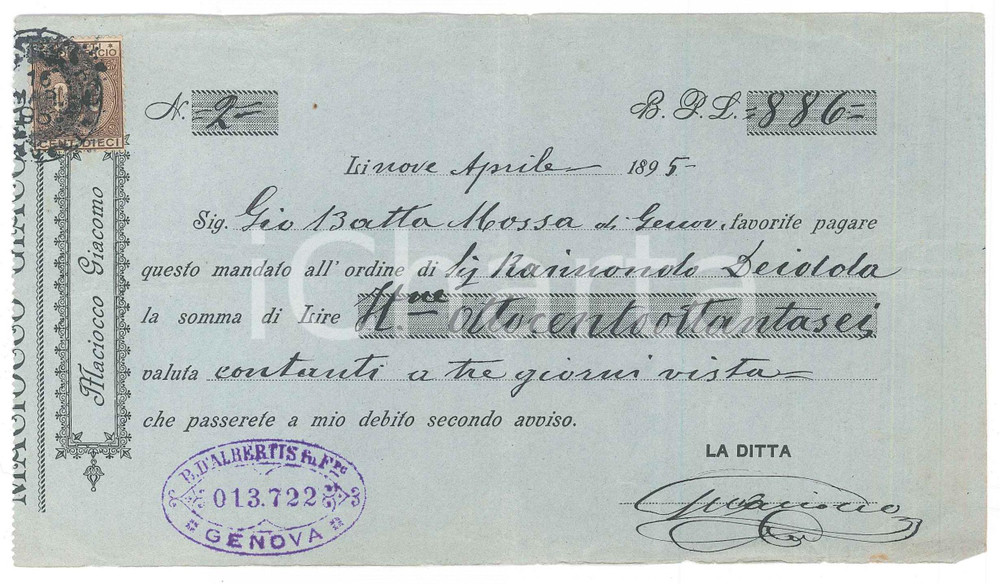 N. =2= B. P. L. =886=
Li nove Aprile 1895
Sig. Gio Batta Mossa di Genov. favorite pagare
questo mandato all' ordine di Sig Raimondo Deidda
la somma di Lire Itne Ottocentoottantasei
valuta contanti a tre giorni vista
che passerete a mio debito secondo avviso.
LA DITTA
Maciocco Giacomo
CENT. DIECI
B. D'ALBERTIS fu Fco
013.722
GENOVA
iCharta